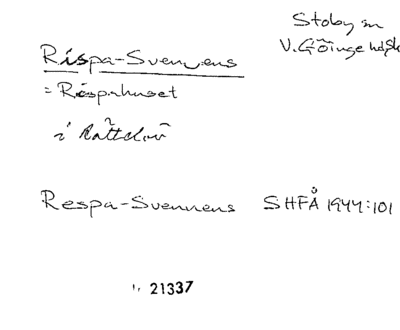 Stoby sn
V. Göinge hd, Sk
Rispa-Svennens
= Rispahuset
i
Respa-Svennens SHFÅ 1944:101
21337